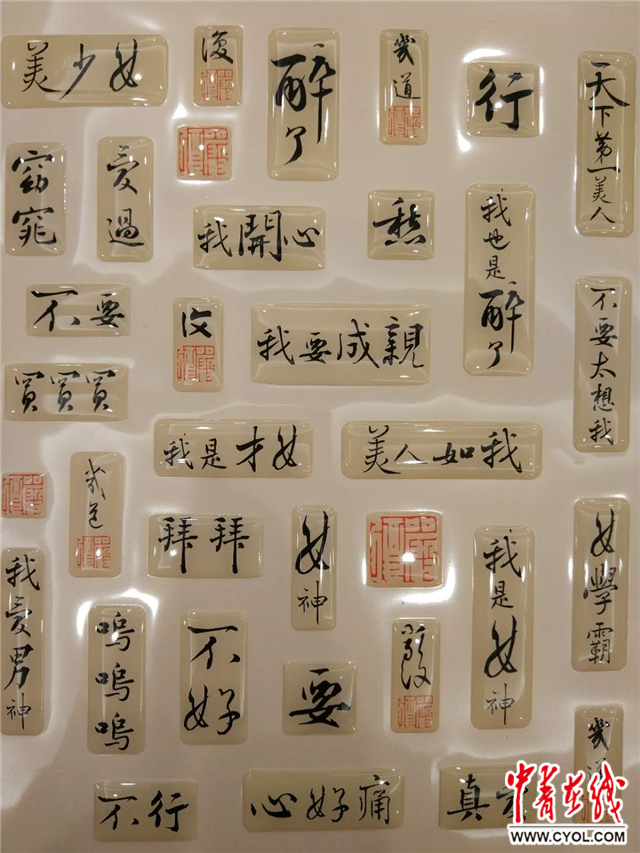 美少女
復
醉了
幾道
行
天下第一美人
窈窕
愛過
我開心
愁
我也是醉了
不要
我要成親
不要太想我
買買買
我是才女
美人如我
幾道
拜拜
女神
我是女神
女學霸
我愛男神
嗚嗚嗚
不好
要
幾道
不行
心好痛
真
中青在线
WWW.CYOL.COM